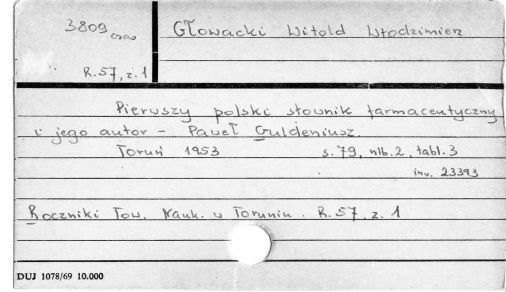 3809 czas
Głowacki Witold Włodzimierz
R.57, z.1
Pierwszy polski słownik farmaceutyczny
i jego autor - Paweł Guldeniusz.
Toruń 1953 s. 79, nlb. 2, tabl. 3
inw. 23393
Roczniki Tow. Nauk. w Toruniu. R.57. z. 1
DUJ 1078/69 10.000